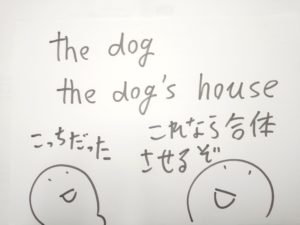 the dog
the dog's house
こっちだった
これなら合体
させるぞ